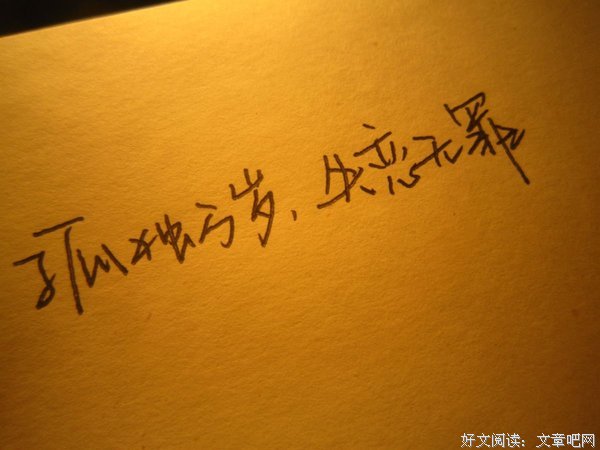 孤独万岁，失恋无罪
好文阅读：文章吧网